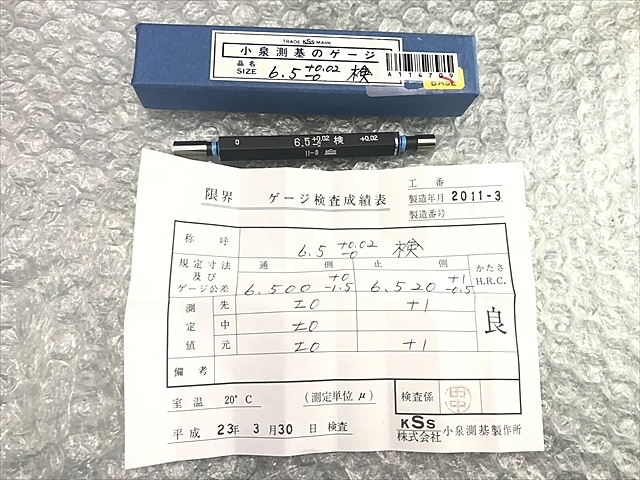 TRADE KSS MARK
小泉測基のゲージ
品名
SIZE 6.5 +0.02 -0 検
A114709
BASE
0 6.5 +0.02 -0 検 +0.02
11-3 KSS
限界 ゲージ検査成績表
工番
製造年月 2011-3
製造番号
称呼 6.5 +0.02 -0 検
規定寸法及びゲージ公差 通側 6.500 +0 -1.5 止側 6.520 +1 -0.5 かたさ H.R.C.
測定値 先 ±0 +1 良
中 ±0
元 ±0 +1
備考
室温 20°C (測定単位μ) 検査係 田中
平成 23年 3月 30日 検査
KSS
株式会社 小泉測基製作所